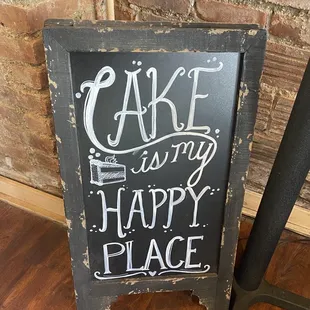 CAKE
is my
HAPPY
PLACE